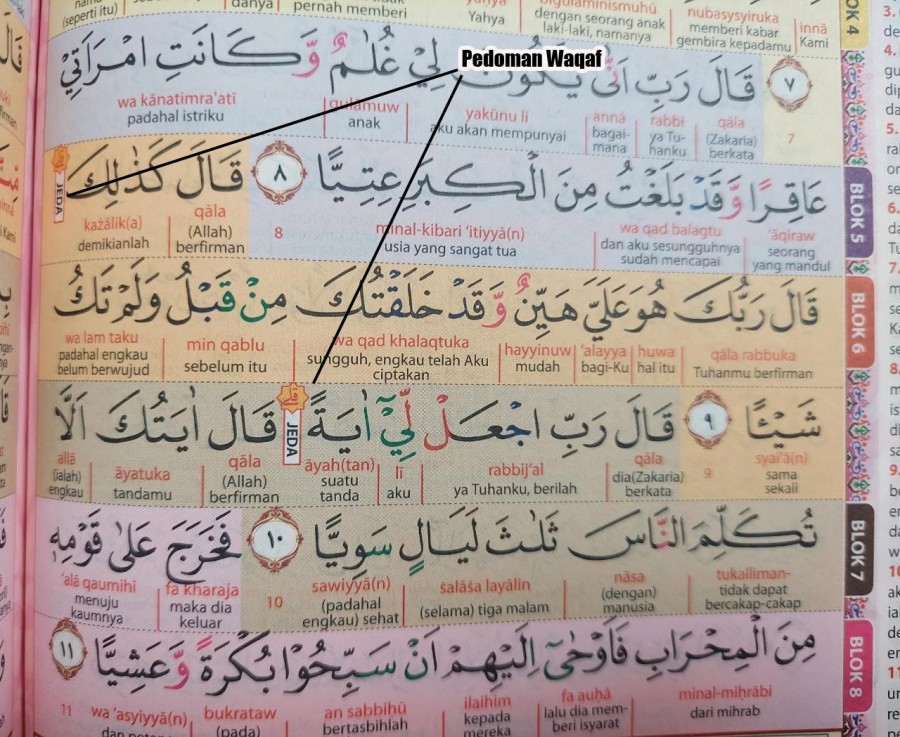 namu (seperti itu) pernah memberi Yahya dengan seorang anak laki-laki, namanya nubasysyiruka memberi kabar gembira kepadamu innā Kami
Pedoman Waqaf
قَالَ رَبِّ اَنّٰى يَكُوْنُ لِيْ غُلٰمٌ وَّكَانَتِ امْرَاَتِيْ
7 qāla (Zakaria) berkata rabbi ya Tu-hanku annā bagai-mana yakūnu lī aku akan mempunyai gulāmuw anak wa kānatimra'atī padahal istriku
عَاقِرًا وَّقَدْ بَلَغْتُ مِنَ الْكِبَرِ عِتِيًّا ٨ قَالَ كَذٰلِكَ
BLOK 5
JEDA
'āqiraw seorang yang mandul wa qad balagtu dan aku sesungguhnya sudah mencapai minal-kibari 'itiyyā(n) usia yang sangat tua 8 qāla (Allah) berfirman każālik(a) demikianlah
قَالَ رَبُّكَ هُوَ عَلَيَّ هَيِّنٌ وَّقَدْ خَلَقْتُكَ مِنْ قَبْلُ وَلَمْ تَكُ
BLOK 6
qāla rabbuka Tuhanmu berfirman huwa hal itu 'alayya bagi-Ku hayyinuw mudah wa qad khalaqtuka sungguh, engkau telah Aku ciptakan min qablu sebelum itu wa lam taku padahal engkau belum berwujud
شَيْـًٔا ٩ قَالَ رَبِّ اجْعَلْ لِّيْٓ اٰيَةً ۗ قَالَ اٰيَتُكَ اَلَّا
JEDA
syai'ā(n) sama sekali 9 qāla dia(Zakaria) berkata rabbij'al ya Tuhanku, berilah lī aku āyah(tan) suatu tanda qāla (Allah) berfirman āyatuka tandamu allā (ialah) engkau
تُكَلِّمَ النَّاسَ ثَلٰثَ لَيَالٍ سَوِيًّا ١٠ فَخَرَجَ عَلٰى قَوْمِهٖ
BLOK 7
tukalliman- tidak dapat bercakap-cakap nāsa (dengan) manusia ṡalāṡa layālin (selama) tiga malam sawiyyā(n) (padahal engkau) sehat 10 fa kharaja maka dia keluar 'alā qaumihī menuju kaumnya
مِنَ الْمِحْرَابِ فَاَوْحٰىٓ اِلَيْهِمْ اَنْ سَبِّحُوْا بُكْرَةً وَّعَشِيًّا ١١
BLOK 8
minal-miḥrābi dari mihrab fa auḥā lalu dia mem-beri isyarat ilaihim kepada mereka an sabbiḥū bertasbihlah bukrataw (pada) wa 'asyiyyā(n) 11